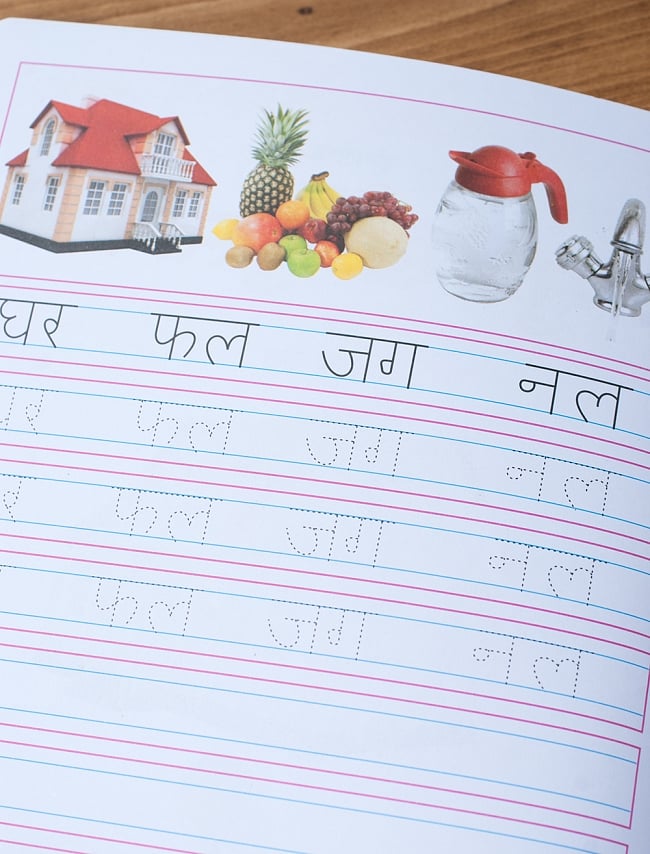 घर फल जग नल
घर फल जग नल
घर फल जग नल
फल जग नल